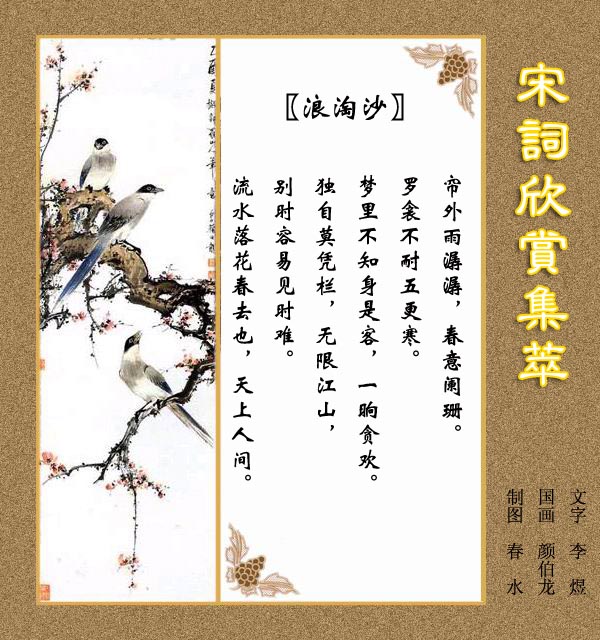 宋詞欣賞集萃
〖浪淘沙〗
帘外雨潺潺，春意阑珊。
罗衾不耐五更寒。
梦里不知身是客，一晌贪欢。
独自莫凭栏，无限江山，
别时容易见时难。
流水落花春去也，天上人间。
文字 李煜
国画 颜伯龙
制图 春水